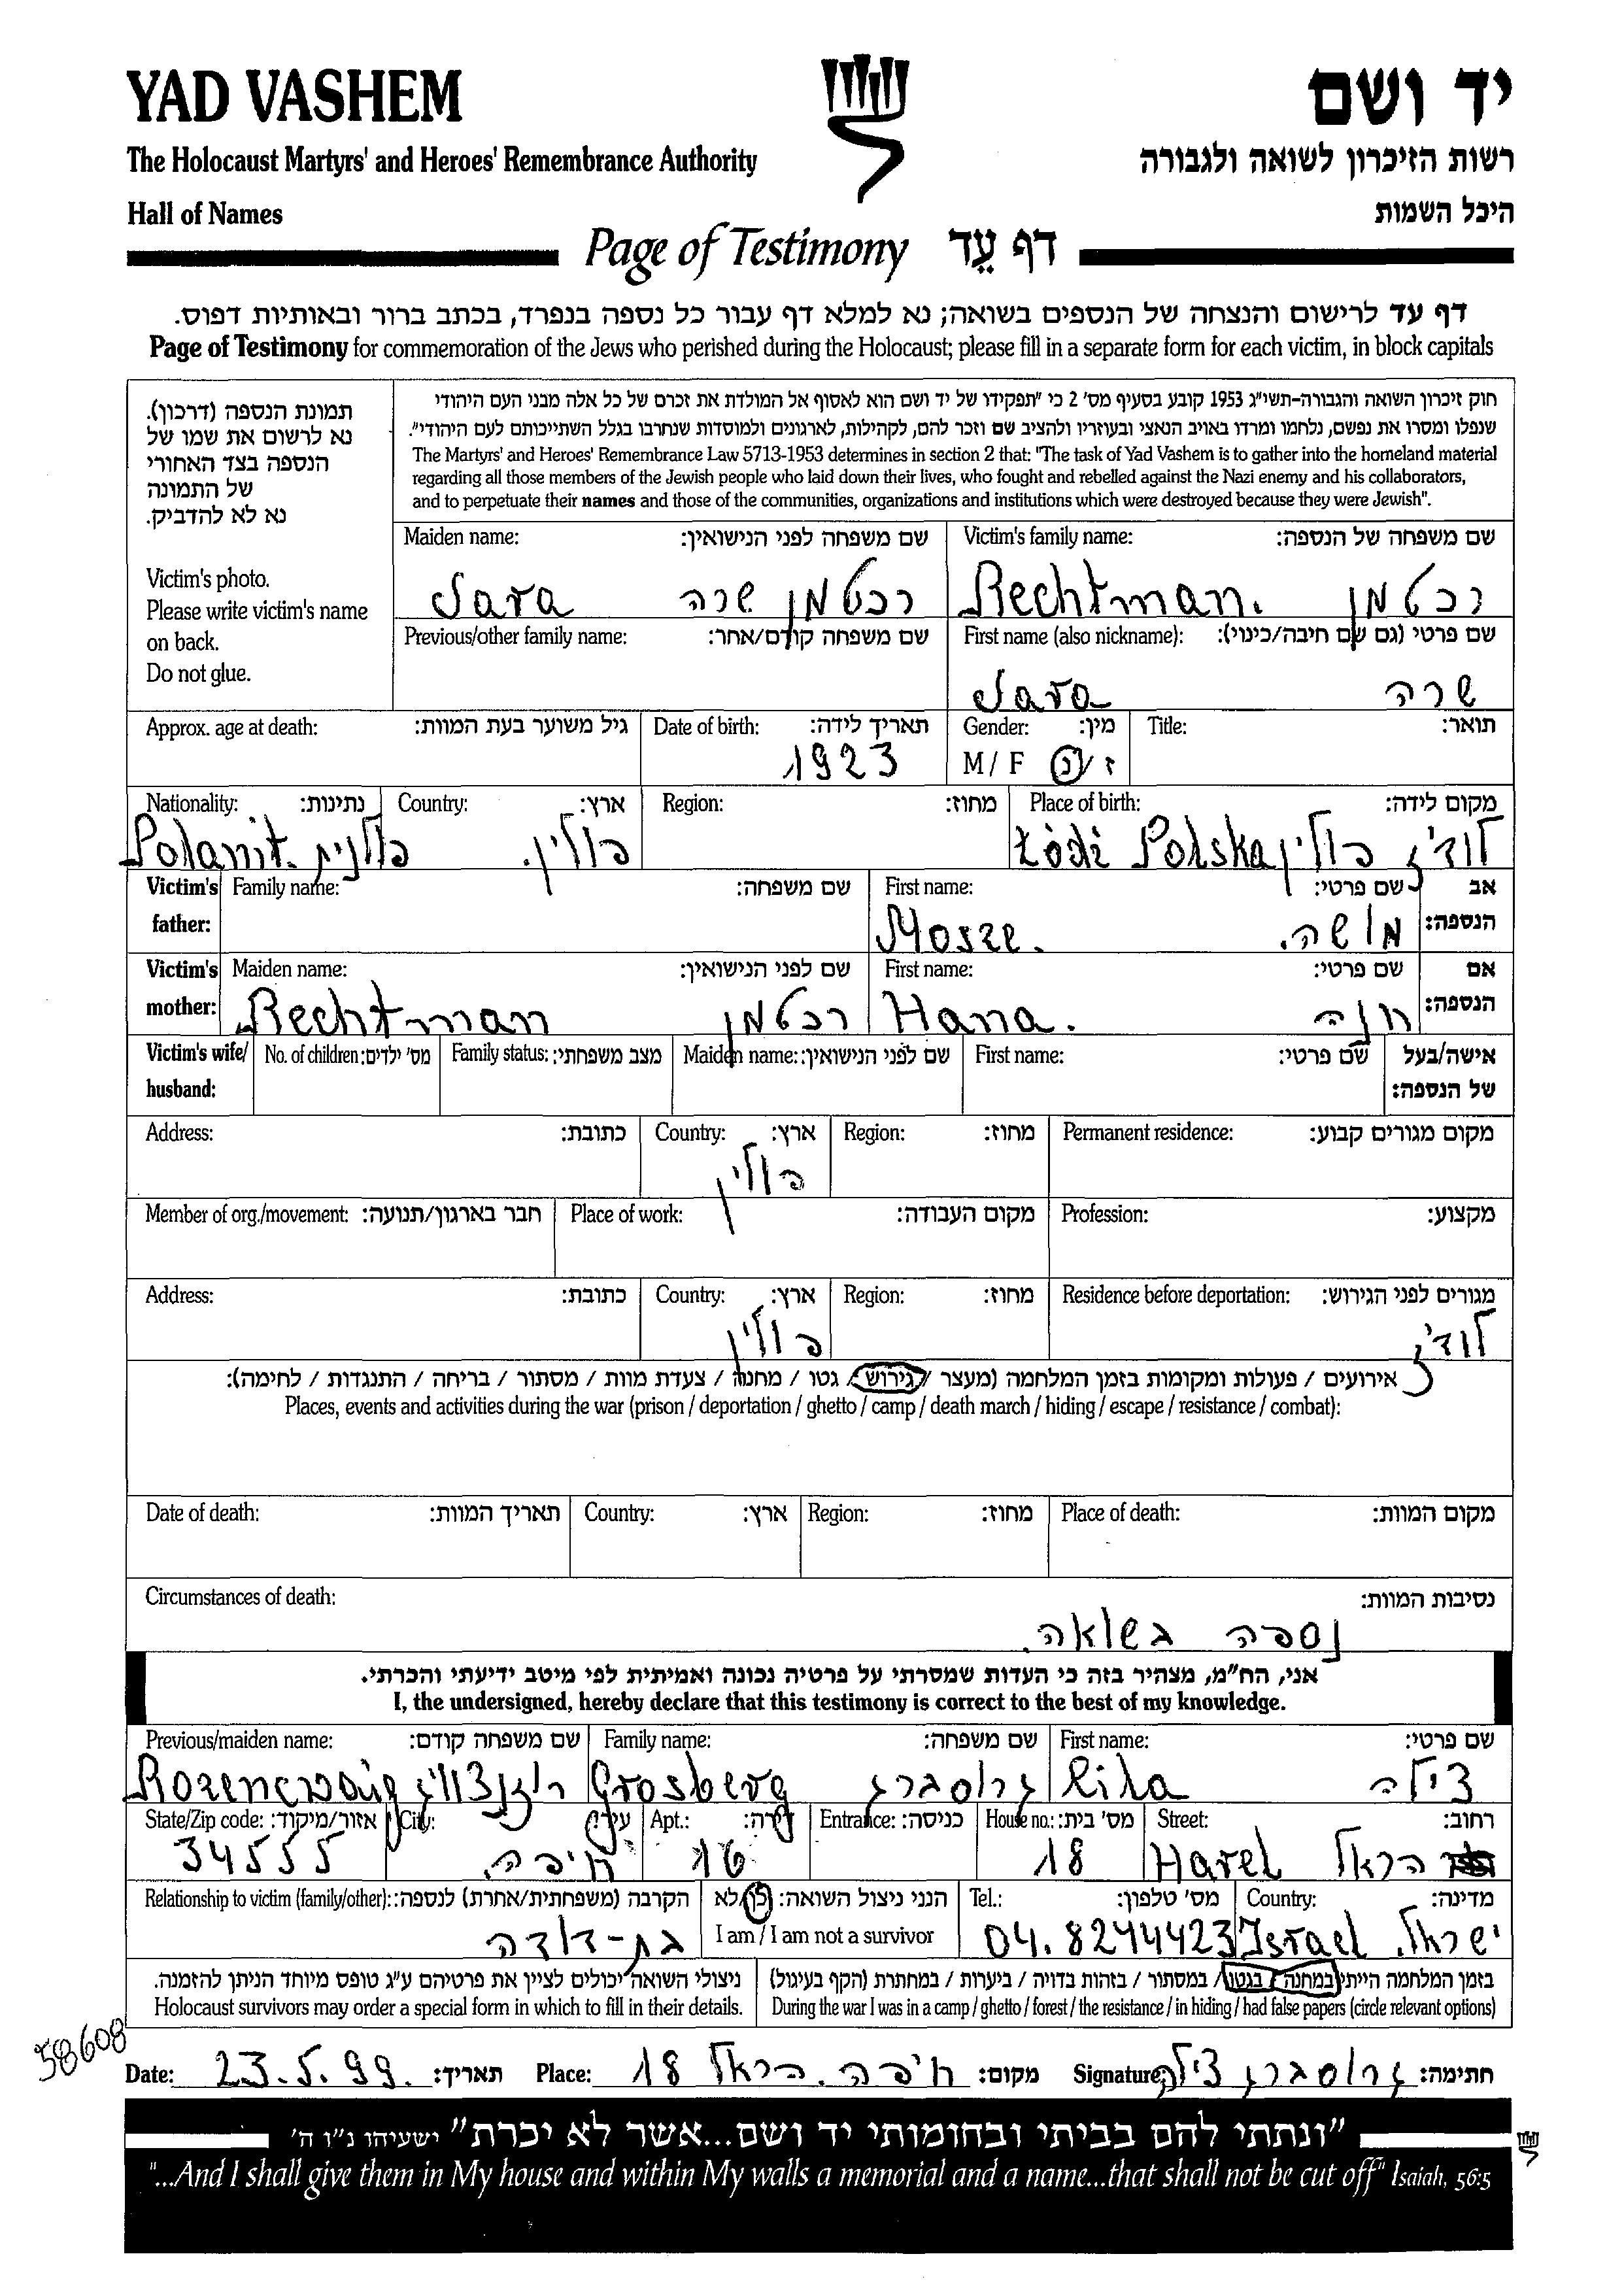 YAD VASHEM יד ושם
The Holocaust Martyrs' and Heroes' Remembrance Authority רשות הזיכרון לשואה ולגבורה
Hall of Names היכל השמות
Page of Testimony דף עֵד
דף עד לרישום והנצחה של הנספים בשואה; נא למלא דף עבור כל נספה בנפרד, בכתב ברור ובאותיות דפוס.
Page of Testimony for commemoration of the Jews who perished during the Holocaust; please fill in a separate form for each victim, in block capitals
תמונת הנספה (דרכון).
נא לרשום את שמו של
הנספה בצד האחורי
של התמונה
נא לא להדביק.
Victim's photo.
Please write victim's name
on back.
Do not glue.
חוק זיכרון השואה והגבורה-תשי"ג 1953 קובע בסעיף מס' 2 כי "תפקידו של יד ושם הוא לאסוף אל המולדת את זכרם של כל אלה מבני העם היהודי
שנפלו ומסרו את נפשם, נלחמו ומרדו באויב הנאצי ובעוזריו ולהציב שם וזכר להם, לקהילות, לארגונים ולמוסדות שנחרבו בגלל השתייכותם לעם היהודי".
The Martyrs' and Heroes' Remembrance Law 5713-1953 determines in section 2 that: "The task of Yad Vashem is to gather into the homeland material
regarding all those members of the Jewish people who laid down their lives, who fought and rebelled against the Nazi enemy and his collaborators,
and to perpetuate their names and those of the communities, organizations and institutions which were destroyed because they were Jewish".
Maiden name: שם משפחה לפני הנישואין: Victim's family name: שם משפחה של הנספה:
Sara רכטמן שרה Rechtman. רכטמן
Previous/other family name: שם משפחה קודם/אחר: First name (also nickname): שם פרטי (גם שם חיבה/כינוי):
Sara שרה
Approx. age at death: גיל משוער בעת המוות: Date of birth: תאריך לידה: Gender: מין: Title: תואר:
1923 M / F ז / נ
Nationality: נתינות: Country: ארץ: Region: מחוז: Place of birth: מקום לידה:
Polanit. פולנית פולין. Łódź Polska לודז' פולין
Victim's father: Family name: שם משפחה: First name: שם פרטי: אב הנספה:
Mosze. מושה.
Victim's mother: Maiden name: שם לפני הנישואין: First name: שם פרטי: אם הנספה:
Rechtman רכטמן Hana. חנה
Victim's wife/ husband: No. of children: מס' ילדים: Family status: מצב משפחתי: Maiden name: שם לפני הנישואין: First name: שם פרטי: אישה/בעל של הנספה:
Address: כתובת: Country: ארץ: Region: מחוז: Permanent residence: מקום מגורים קבוע:
פולין
Member of org./movement: חבר בארגון/תנועה: Place of work: מקום העבודה: Profession: מקצוע:
Address: כתובת: Country: ארץ: Region: מחוז: Residence before deportation: מגורים לפני הגירוש:
פולין לודז'
אירועים / פעולות ומקומות בזמן המלחמה (מעצר / גירוש / גטו / מחנה / צעדת מוות / מסתור / בריחה / התנגדות / לחימה):
Places, events and activities during the war (prison / deportation / ghetto / camp / death march / hiding / escape / resistance / combat):
Date of death: תאריך המוות: Country: ארץ: Region: מחוז: Place of death: מקום המוות:
Circumstances of death: נסיבות המוות:
נספה בשואה.
אני, הח"מ, מצהיר בזה כי העדות שמסרתי על פרטיה נכונה ואמיתית לפי מיטב ידיעתי והכרתי.
I, the undersigned, hereby declare that this testimony is correct to the best of my knowledge.
Previous/maiden name: שם משפחה קודם: Family name: שם משפחה: First name: שם פרטי:
Rozencwaig רוזנצוויג Grosberg גרוסברג צילה
State/Zip code: אזור/מיקוד: City: עיר: Apt.: דירה: Entrance: כניסה: House no.: מס' בית: Street: רחוב:
34555 חיפה. 16 18 Harel הראל
Relationship to victim (family/other): הקרבה (משפחתית/אחרת) לנספה: הנני ניצול השואה: כן/לא Tel.: מס' טלפון: Country: מדינה:
בת-דודה I am / I am not a survivor 04. 8244423 Israel ישראל.
ניצולי השואה יכולים לציין את פרטיהם ע"ג טופס מיוחד הניתן להזמנה. בזמן המלחמה הייתי במחנה / בגטו / במסתור / בזהות בדויה / ביערות / במחתרת (הקף בעיגול)
Holocaust survivors may order a special form in which to fill in their details. During the war I was in a camp / ghetto / forest / the resistance / in hiding / had false papers (circle relevant options)
58608
Date: 23.5.99. תאריך: Place: חיפה. הראל 18 מקום: Signature: גרוסברג צילה חתימה:
"ונתתי להם בביתי ובחומותי יד ושם...אשר לא יכרת" ישעיהו נ"ו ה'
"...And I shall give them in My house and within My walls a memorial and a name...that shall not be cut off" Isaiah, 56:5